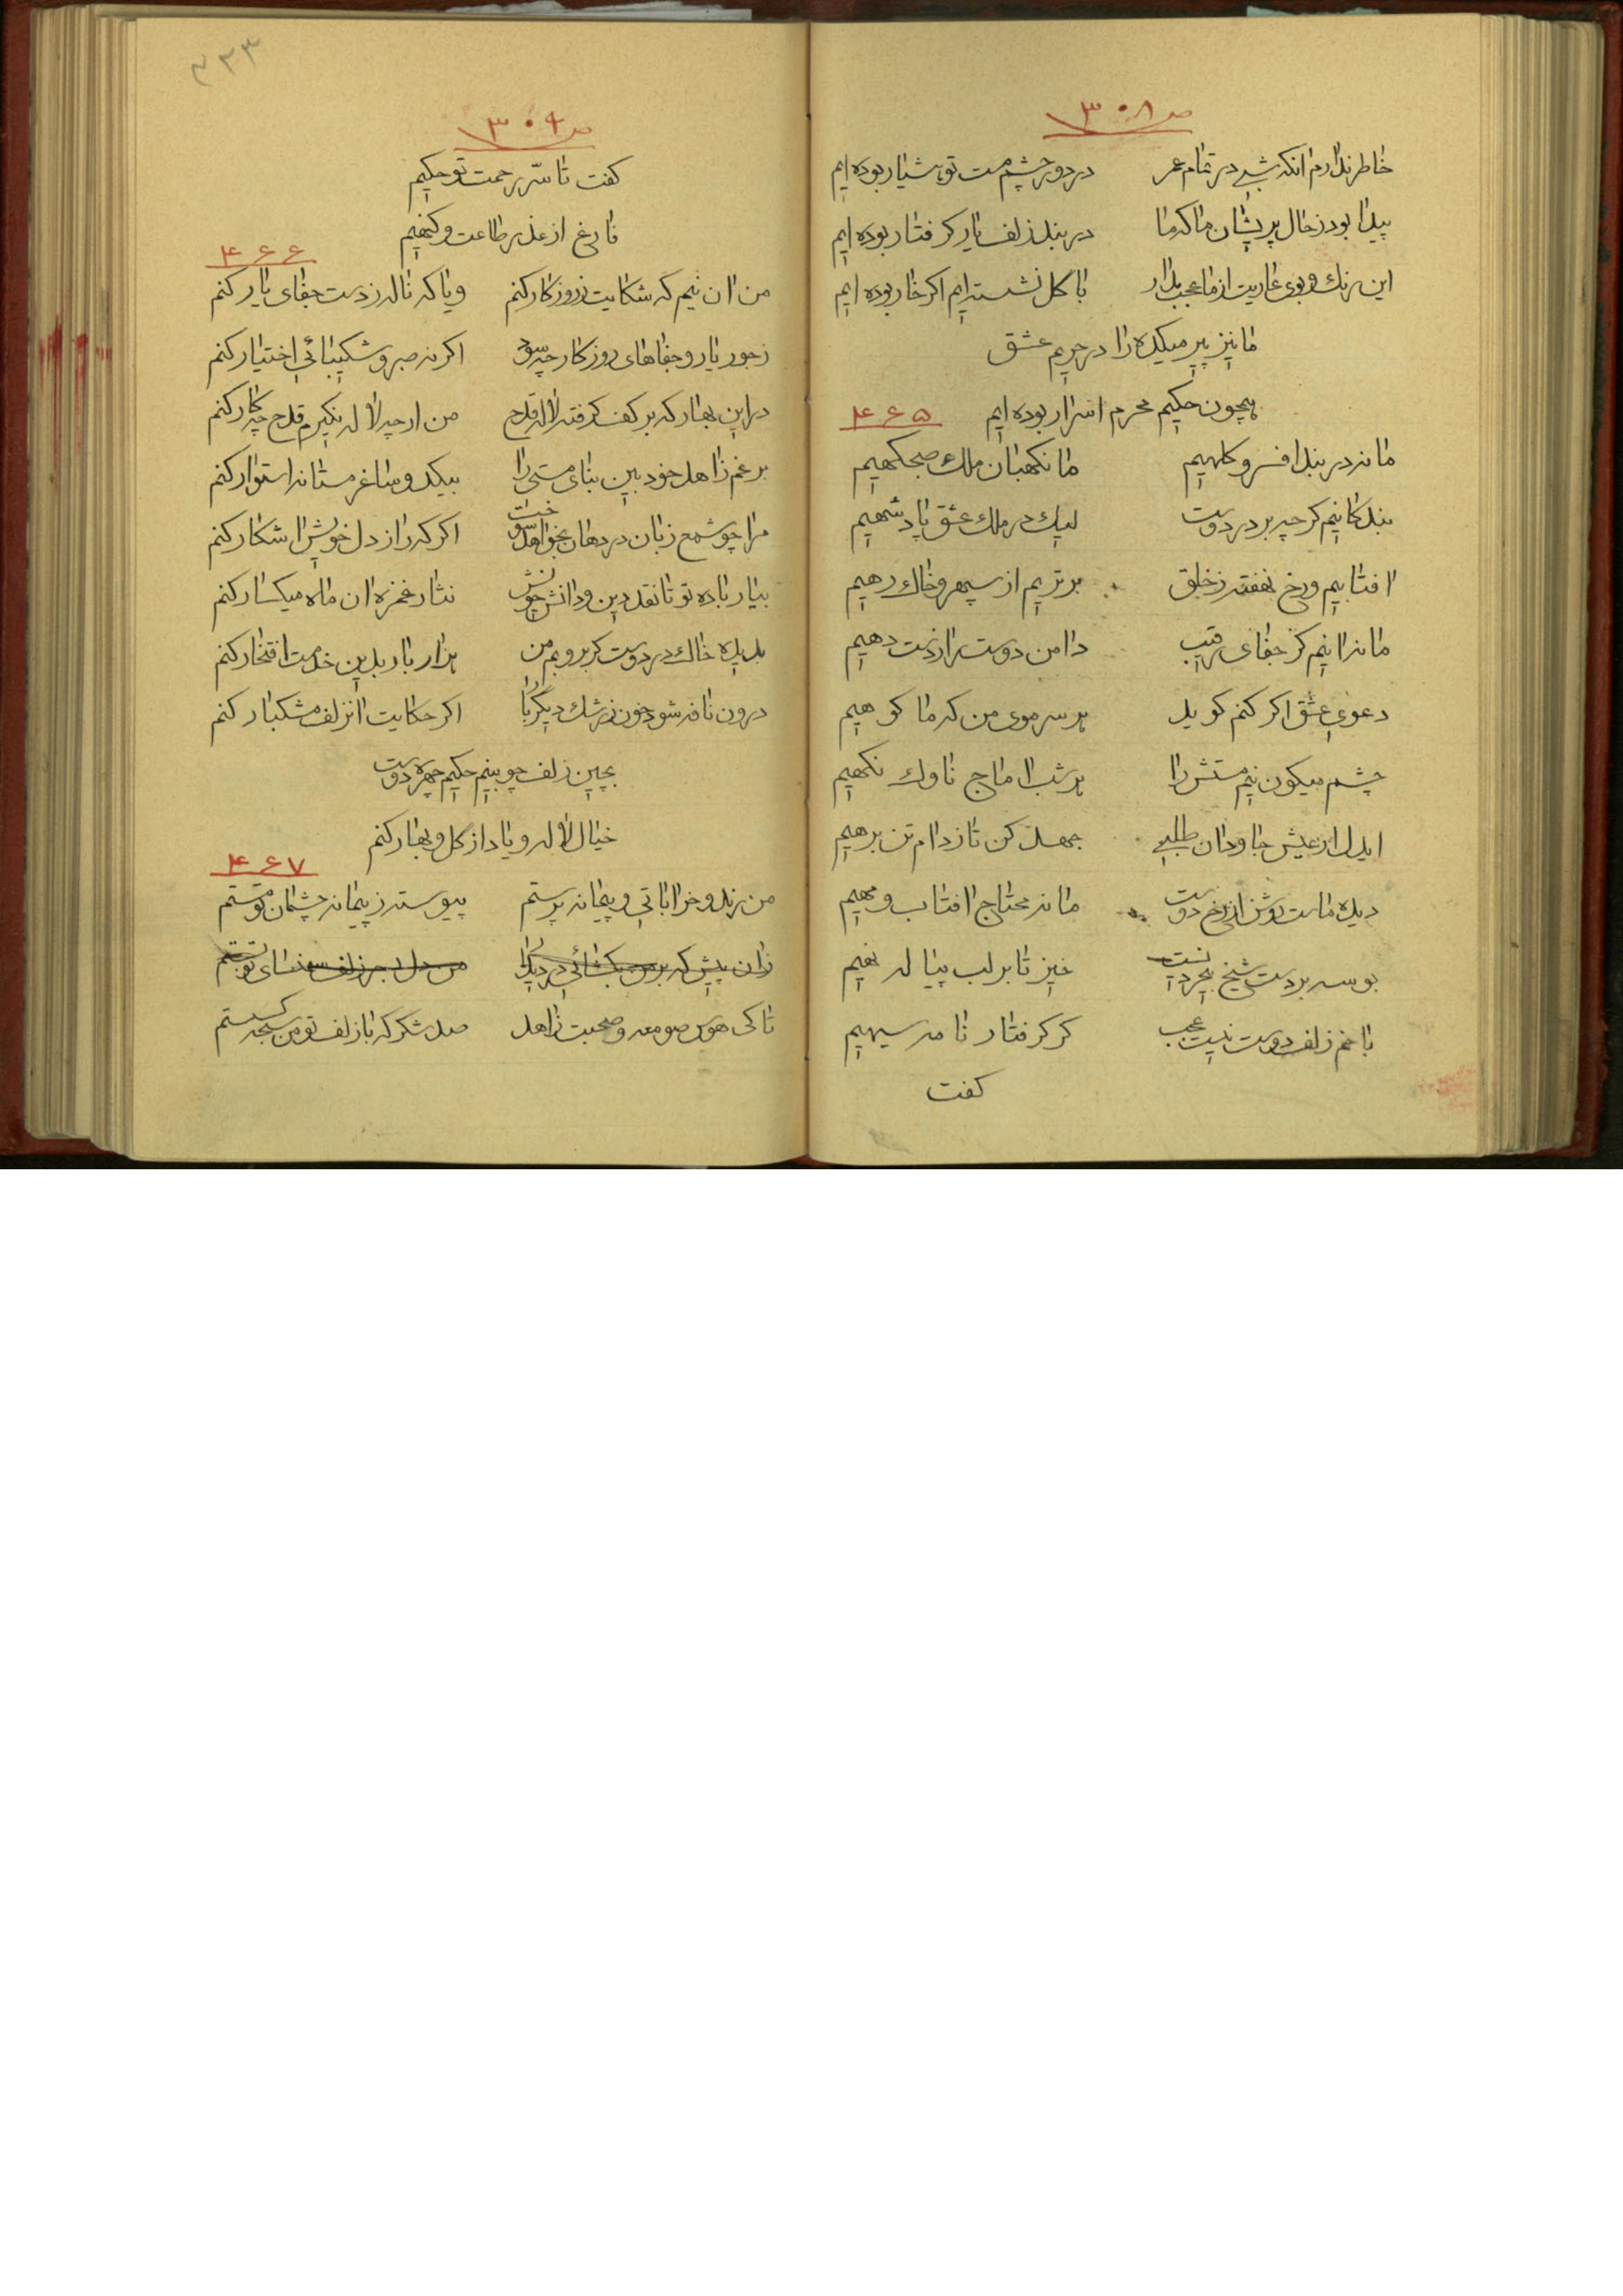 ص ۳۰۸
خاطر ندارم انکه شبی در تمام عمر در دور چشم مست تو هشیار بوده ایم
پیدا بود ز حال پریشان ما که ما در بند زلف یار کرفتار بوده ایم
این رنك و بوی عاریت از ما عجب مدار با کل نشسته ایم اکر خار بوده ایم
ما نیز پیر میکده را در حریم عشق
همچون حکیم محرم اسرار بوده ایم
۴۶۵
ما نه در بند افسر و کلهیم ما نکهبان ملك صبحکهیم
بندکانیم کر چه بر در دوست لیك در ملك عشق پادشهیم
افتابیم و رخ نهفته ز خلق برتریم از سپهر و خاك رهیم
ما نه انیم کز جفای رقیب دامن دوست را ز دست دهیم
دعوی عشق اکر کنم کوید هر سر موی من که ما کوهیم
چشم میکون نیم مستش را هر شب اماج ناوك نکهیم
ایدل ار عیش جاودان طلبی جهد کن تا ز دام تن برهیم
دیده ماست روشن از رخ دوست ما نه محتاج افتاب و مهیم
بوسه بر دست شیخ بیخردیست خیز تا بر لب پیاله نهیم
با غم زلف دوست نیست عجب کر کرفتار نامه سیهیم
کفت
۳۳۳
ص ۳۰۹
کفت تا سر رحمت تو حکیم
فارغ از عذر طاعت و کنهیم
۴۶۶
من ان نیم که شکایت ز روزکار کنم و یا که ناله ز دست جفای یار کنم
ز جور یار و جفاهای روزکار چه سود اکر نه صبر و شکیبائی اختیار کنم
در این بهار که بر کف کرفته لاله قدح من ار چه لاله نکیرم قدح چه کار کنم
برغم زاهد خود بین بنای مستی را بیکدو ساغر مستانه استوار کنم
مرا چو شمع زبان در دهان بخواهد سوخت اکر که راز دل خویش اشکار کنم
بیار باده تو تا نقد دین و دانش خویش نثار غمزه ان ماه میکسار کنم
بدیده خاك در دوست کر بروبم من هزار بار بدین خدمت افتخار کنم
درون نافه شود خون ز رشك دیکر بار اکر حکایت از زلف مشکبار کنم
بچین زلف چو بینم حکیم چهره دوست
خیال لاله و یاد از کل و بهار کنم
۴۶۷
من رند و خراباتی و پیمانه پرستم پیوسته ز پیمانه چشمان تو مستم
زان پیش که بر من بکشائی در من دل بسر زلف سمنسای تو بستم
تا کی هوس صومعه و صحبت زاهد صد شکر که با زلف تو من سبحه کسستم